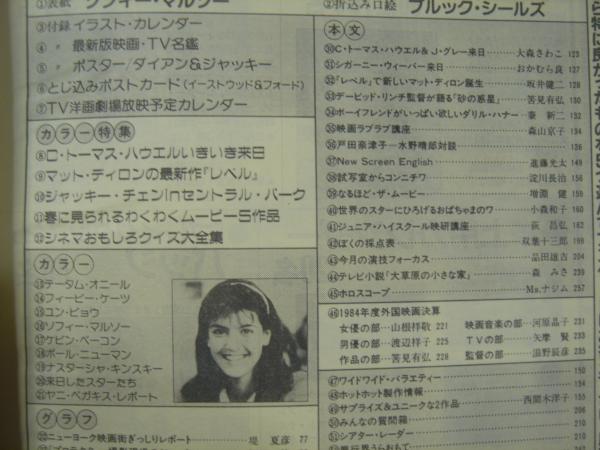 ①表紙 ソフィー・マルソー
③付録イラスト・カレンダー
④ 〃 最新版映画・TV名鑑
⑤ 〃 ポスター/ダイアン&ジャッキー
⑥とじ込みポストカード(イーストウッド&フォード)
⑦TV洋画劇場放映予定カレンダー
カラー特集
⑧C・トーマス・ハウエルいきいき来日
⑨マット・ディロンの最新作『レベル』
⑩ジャッキー・チェンinセントラル・パーク
⑪春に見られるわくわくムービー5作品
⑫シネマおもしろクイズ大全集
カラー
⑬テータム・オニール
⑭フィービー・ケーツ
⑮ユン・ピョウ
⑯ソフィー・マルソー
⑰ケビン・ベーコン
⑱ポール・ニューマン
⑲ナスターシャ・キンスキー
⑳来日したスターたち
㉑ヤニ・ベガキス・レポート
グラフ
㉒ニューヨーク映画街ぎっしりレポート……堤 夏彦 77
②折込み口絵 ブルック・シールズ
本文
㉚C・トーマス・ハウエル&J・グレー来日……大森さわこ 123
㉛シガーニー・ウィーバー来日……おかむら良 127
㉜「レベル」で新しいマット・ディロン誕生……坂井健二 128
㉝デービッド・リンチ監督が語る「砂の惑星」……筈見有弘 130
㉞ボーイフレンドがいっぱい欲しいダリル・ハナー……秦 新二 132
㉟映画ラブラブ講座……森山京子 134
㊱戸田奈津子―水野晴郎対談……136
㊲New Screen English……進藤光太 149
㊳試写室からコンニチワ……淀川長治 156
㊴なるほど・ザ・ムービー……増淵 健 159
㊵世界のスターにひろげるおばちゃまのワ……小森和子 160
㊶ジュニア・ハイスクール映研講座……荻 昌弘 162
㊷ぼくの採点表……双葉十三郎 198
㊸今月の演技フォーカス……品田雄吉 204
㊹テレビ小説「大草原の小さな家」……森 みさ 239
㊺ホロスコープ……Ms.ナジム 257
㊻1984年度外国映画決算
女優の部…山根祥敬 221 映画音楽の部…河原晶子 231
男優の部…渡辺祥子 225 TVの部…矢摩 賢 233
作品の部…筈見有弘 228 監督の部…淵野辰彦 235
㊼ワイドワイド・バラエティー……150
㊽ホットホット製作情報……154
㊾サプライズ&ユニークな2作品……西間木洋子 155
㊿みんなの質問箱……206
シアター・レーダー……210